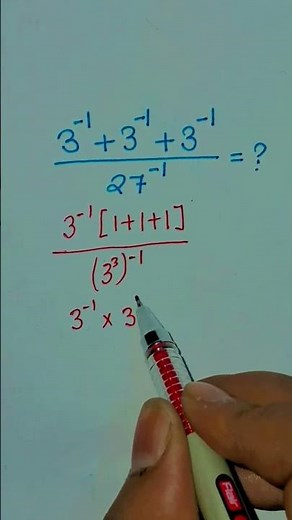 3⁻¹ + 3⁻¹ + 3⁻¹
27⁻¹ = ?
3⁻¹ [1+1+1]
(3³)⁻¹
3⁻¹ × 3